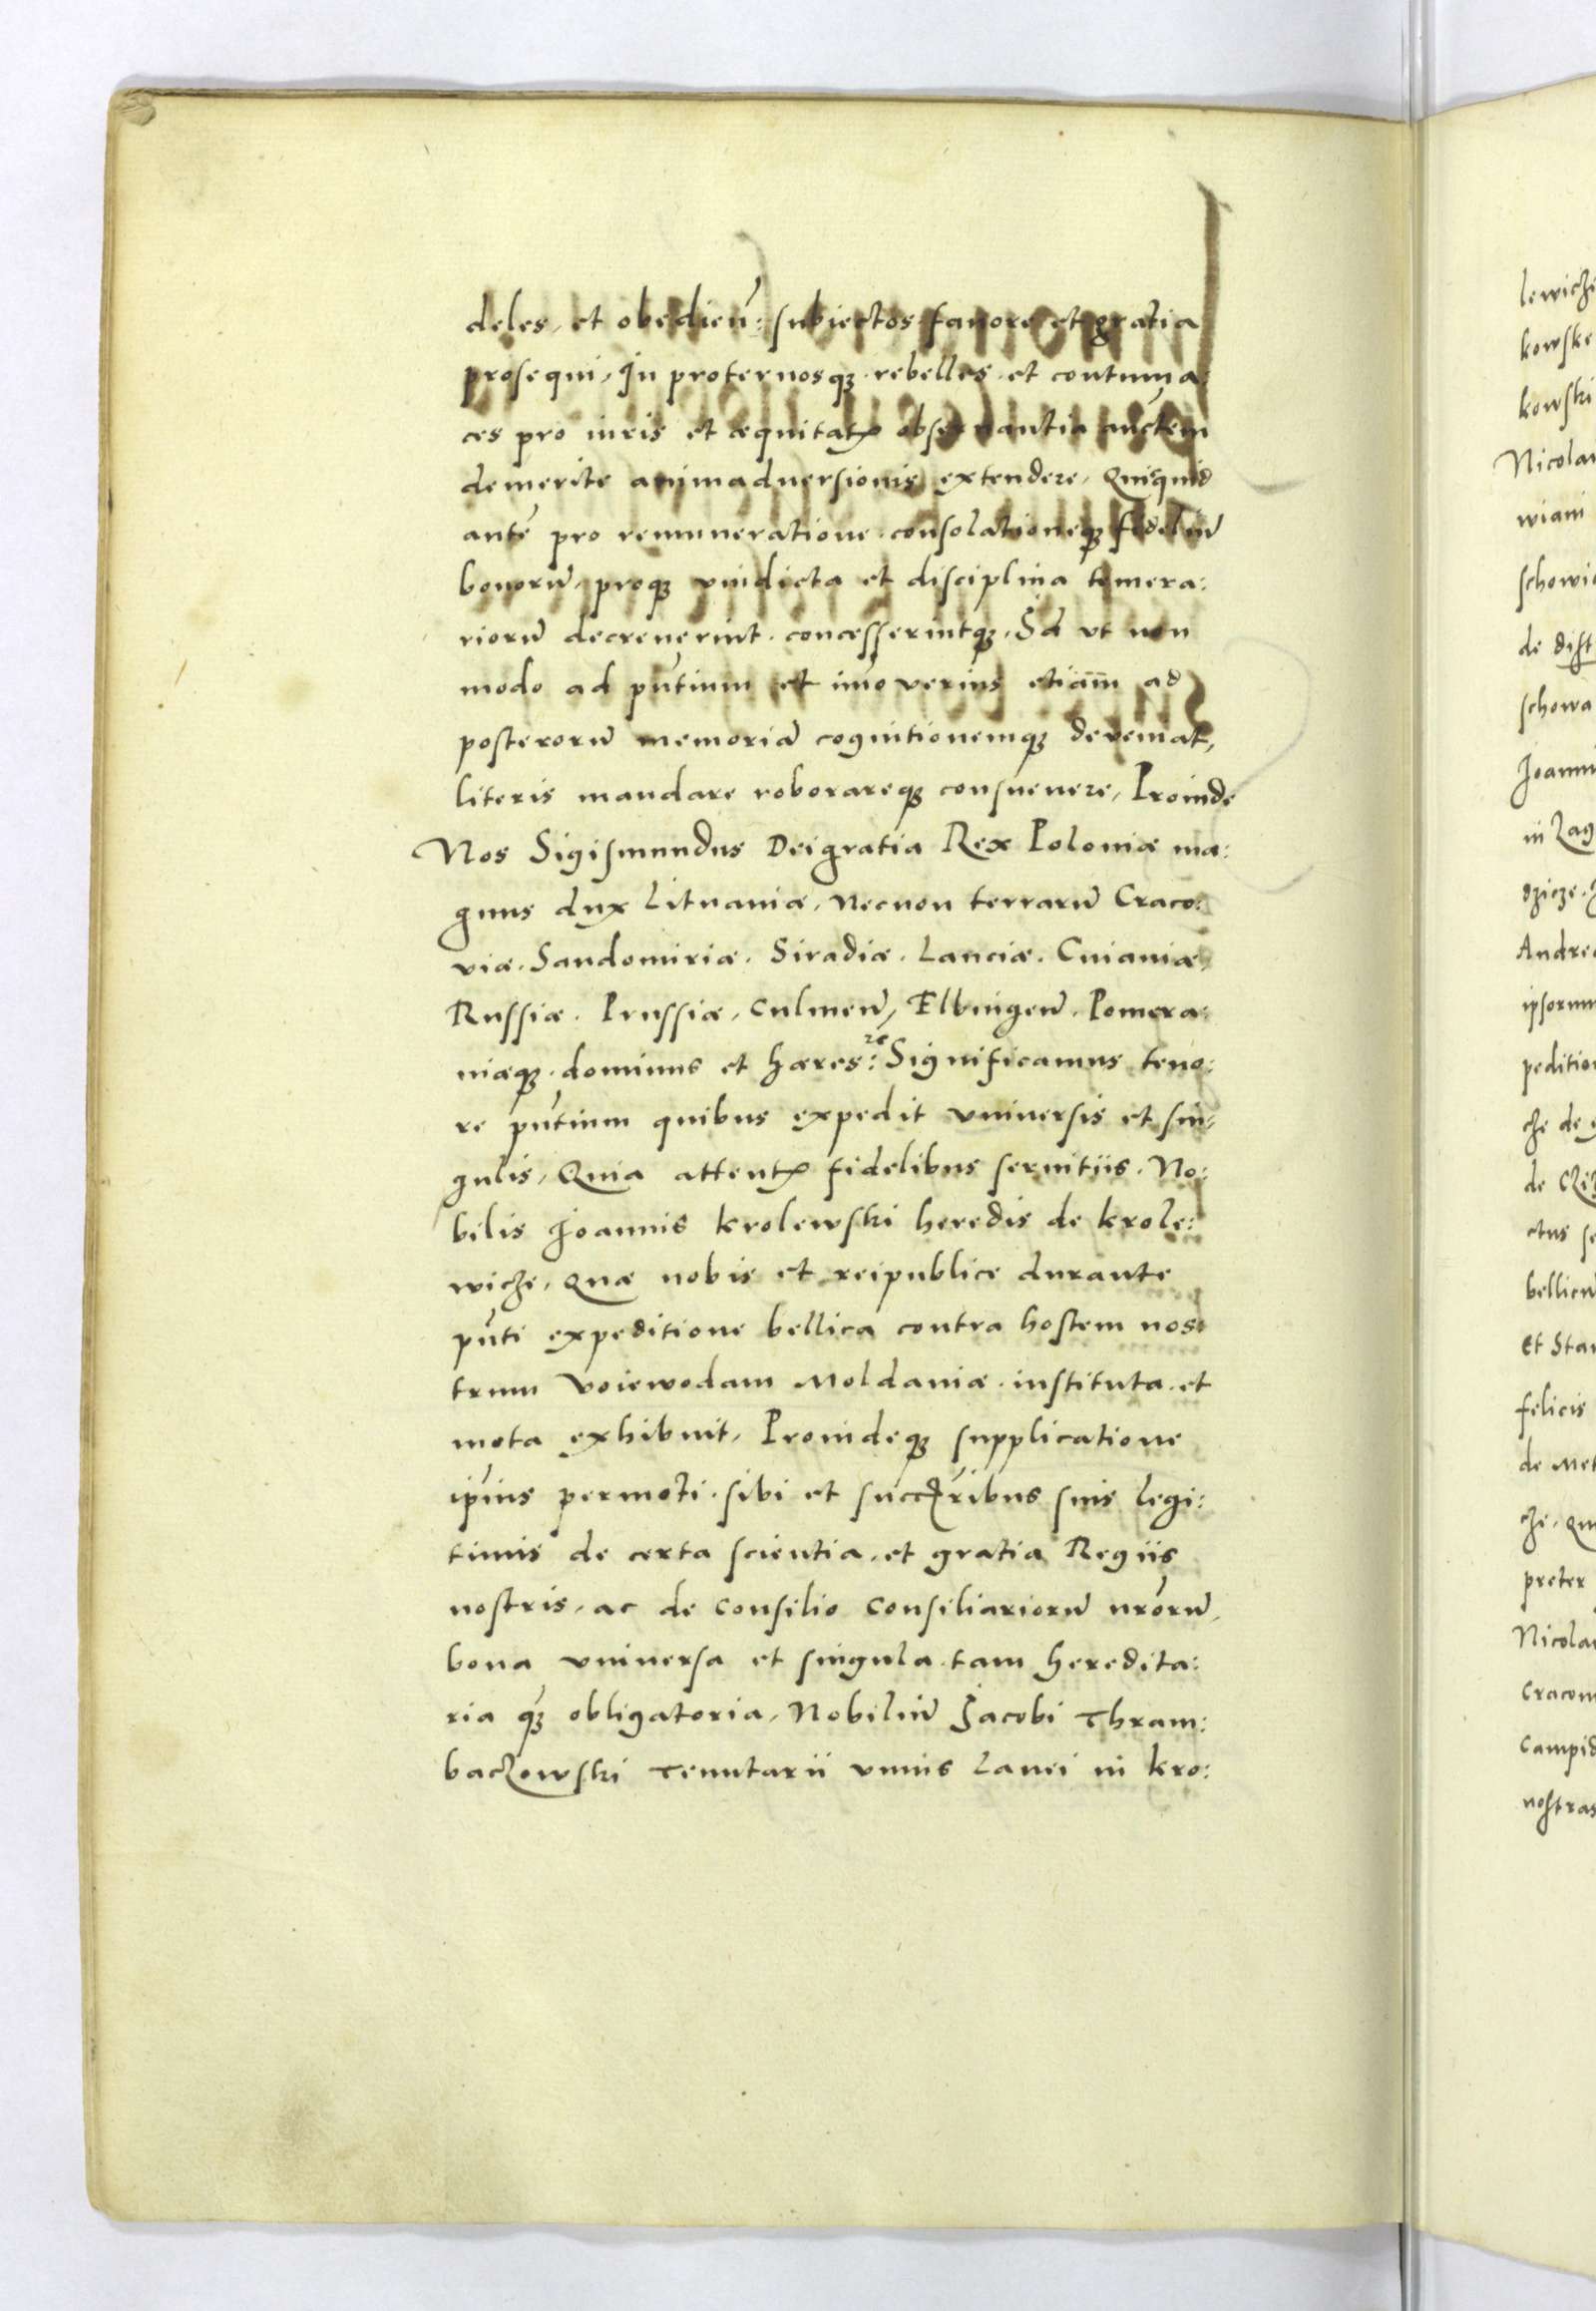 deles, et obedien̄: subiectos fauore et gratia
prosequi, In proteruosqȝ rebelles et contuma:
ces pro iuris et æquitatꝭ obseruantia
demerite animaduersionis extendere, Quicquid
aute᷃ pro remuneratione consolationeqȝ fideliū
bonorū, proqȝ vindicta et disciplina temera:
riorū decreuerint concesserintqȝ, Id vt non
modo ad pn̄tium et imo verius etiam̄ ad
posterorū memoriā cognitionemqȝ deueniat,
literis mandare roborareqȝ consueuere, Proinde
Nos Sigismundus Dei gratia Rex Poloniæ ma:
gnus dux Lituaniæ, Necnon terrarū Craco:
viæ. Sandomiriæ. Siradiæ. Lanciæ. Cuiauiæ,
Russiæ. Prussiæ, Culmen̄, Elbingen̄. Pomera:
niæqȝ dominus et hæres: ꝛc Significamus teno:
re pn̄tium quibus expedit vniuersis et sin:
gulis, Quia attentꝭ fidelibus seruitiis. No:
bilis Joannis Krolewski heredis de Krole:
wicze, Quæ nobis et reipublice durante
pn̄ti expeditione bellica contra hostem nos
trum Voiewodam Moldauiæ instituta et
mota exhibuit, Proindeqȝ supplicatione
ip̄ius permoti sibi et succ̄ribus suis legi:
timis de certa scientia, et gratia Regiis
nostris, ac de Consilio Consiliariorū nr̄orū,
bona vniuersa et singula tam heredita:
ria qȝ obligatoria, Nobiliū Jacobi Thram:
baczowski Tenutarii vnius Lanei in Kro:
lewicz
kowske
kowski
Nicola
wiani
schowi
de dist
schowa
Joanni
in Zag
dzicze.
Andre
ipsorum
peditio
che de
de Czi
ctus se
bellicu
et Sta
felicis
de Met
che, Qu
preter
Nicola
Cracou
Campid
nostras